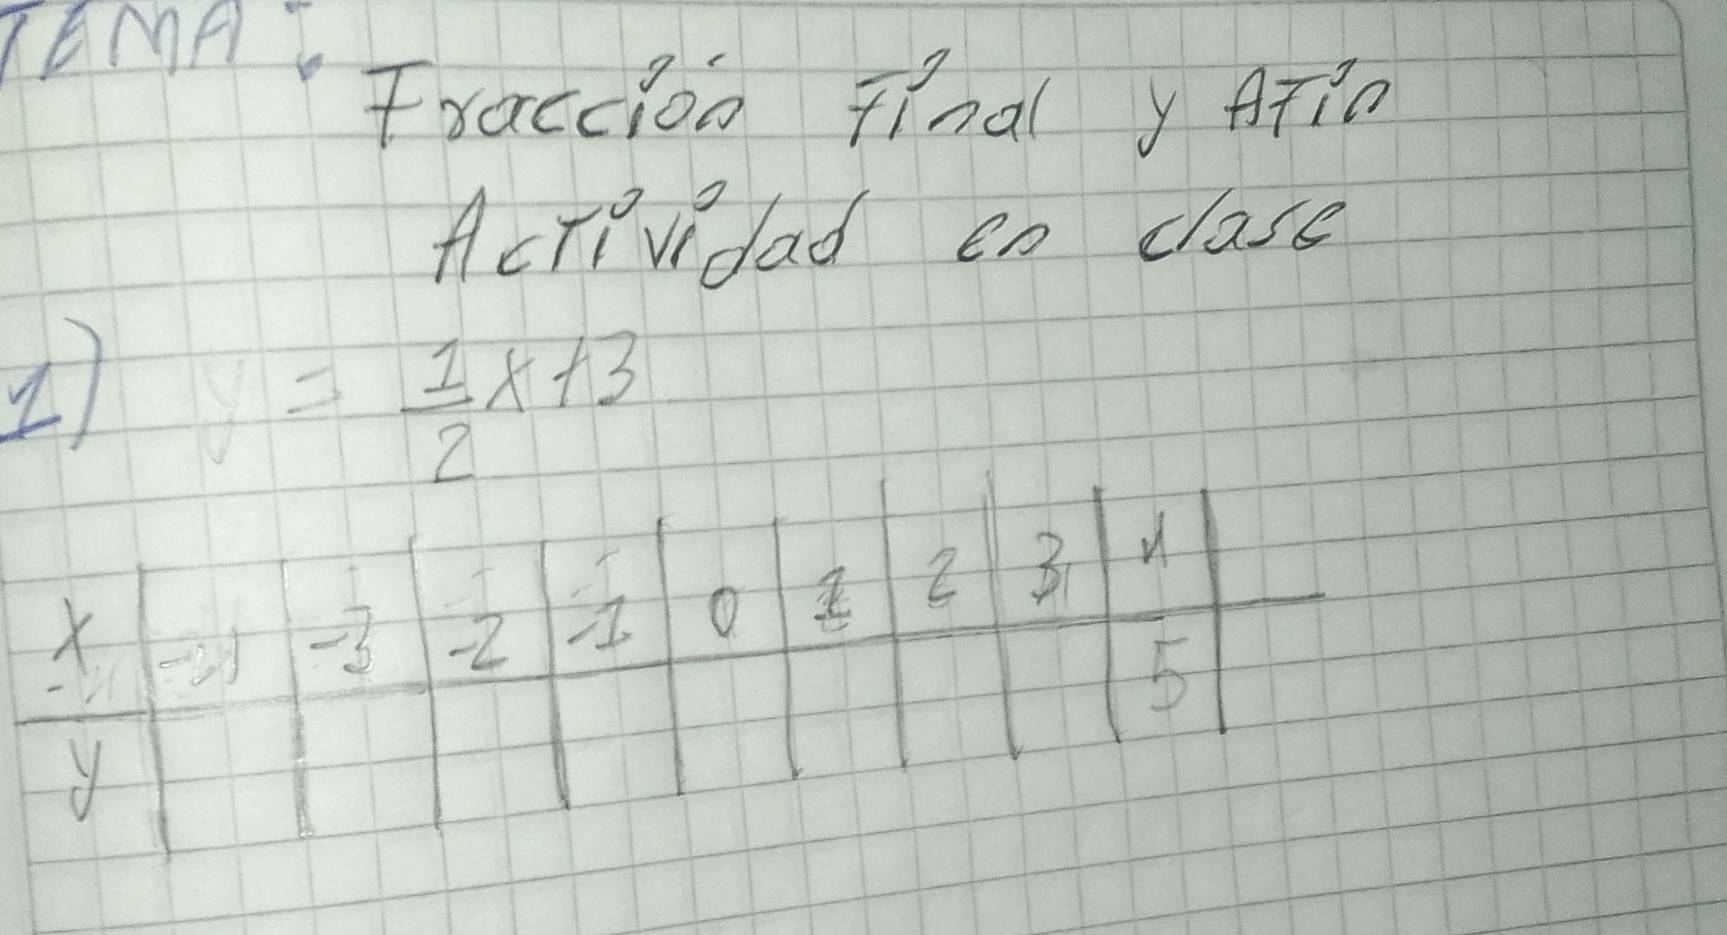 TEMA:
Fracción Final y Afin
Actividad en clase
1) y = 1/2 x+3
x -4 -3 -2 -1 0 1 2 3 4
y 5